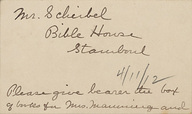 Mr. Scheibel
Bible House
Stamboul
4/11/12
Please give bearer the box
of books for Mrs. Manning and